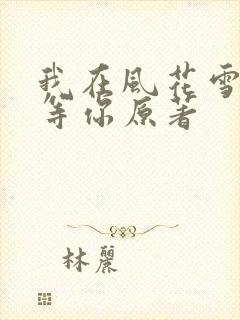 我在風花雪
等你原著
林麗